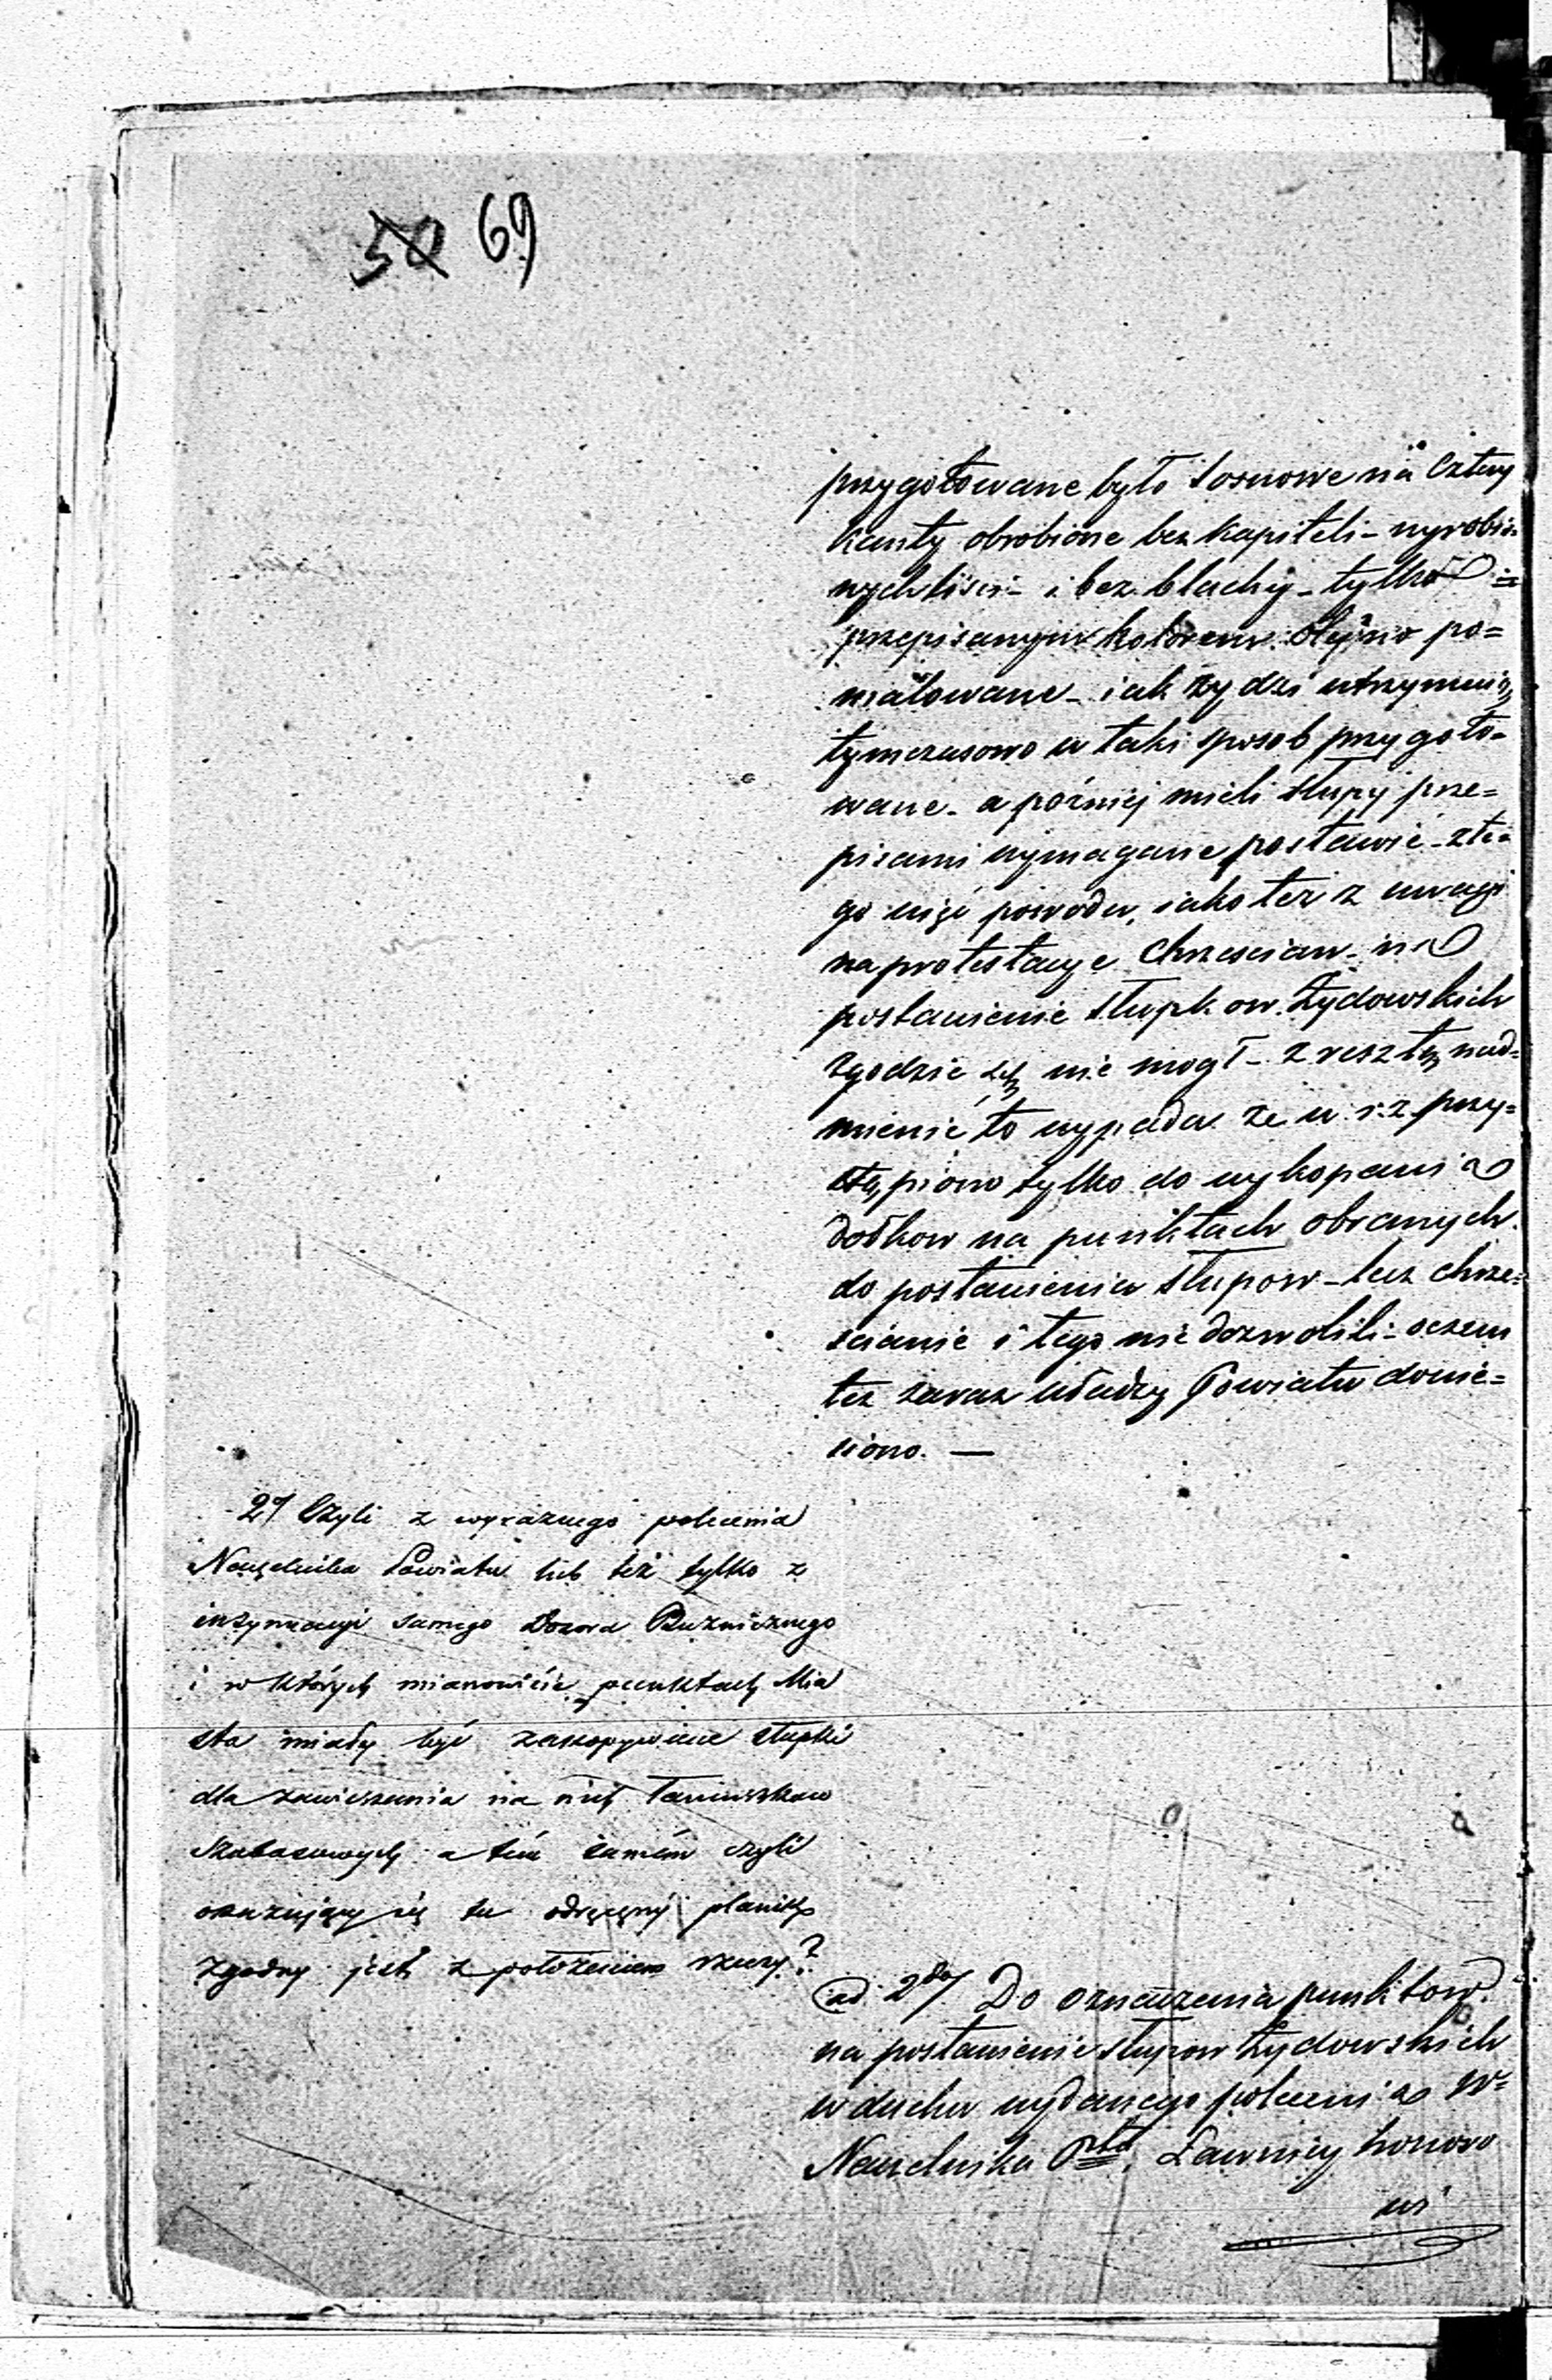 50 69
przygotowane było sosnowe na cztery
kanty obrobione bez kapiteli – wyrobio-
nych liści – i bez blachy – tylko =
przepisanym kolorem olejno po=
malowane – iak żydzi utrzymuią
tymczasowo w taki sposob przygoto-
wane – a poźniej mieli słupy prze=
pisami wymagane postawić – z te=
go więc powodu, iako też z uwagi
na protestacye Chrzescian – na
postawienie słupkow Żydowskich
zgodzić się nie mogł – zresztą nad=
mienić to wypada że w r. z. przy=
stąpiono tylko do wykopania
dołkow na punktach obranych
do postawienia słupow – lecz chrze=
scianie i tego nie dozwolili – oczem
też zaraz władzy Powiatu donie=
siono. —
2/ Czyli z wyraznego polecenia
Naczelnika Powiatu lub też tylko z
intymacyi samego Dozoru Bużniczego
i w których mianowicie punktach Mia
sta miały być zakopywane słupki
dla zawieszenia na nich
Szabasowych a tém samém czyli
okazujący się tu odręczny planik
zgodny jest z położeniem rzeczy?
ad 2do/ Do oznaczenia punktow
na postawienie słupow Żydowskich
w duchu wydanego polecenia W=
Naczelnika Ptu. Ławnicy honoro
wi